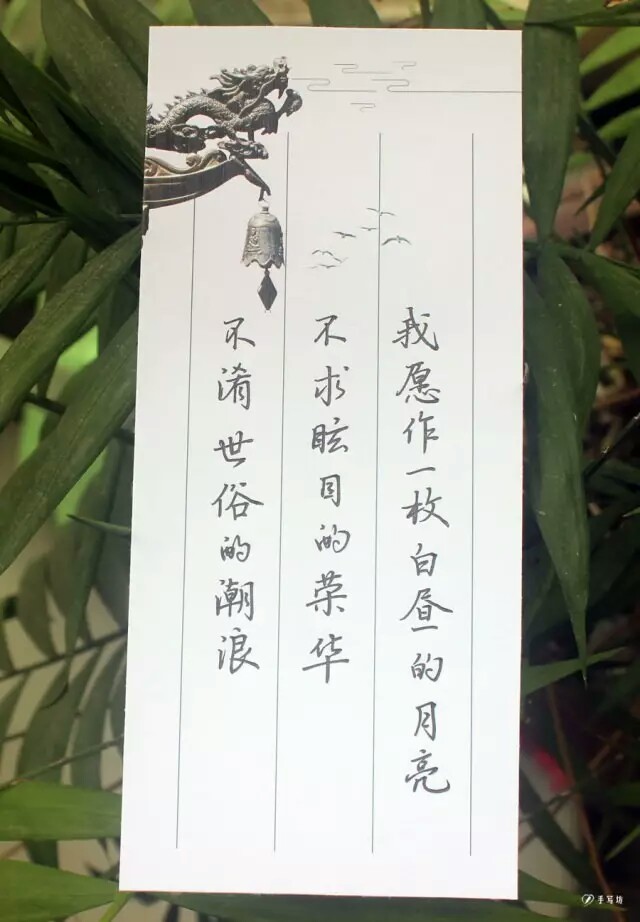 我愿作一枚白昼的月亮
不求眩目的荣华
不淆世俗的潮浪
手写坊